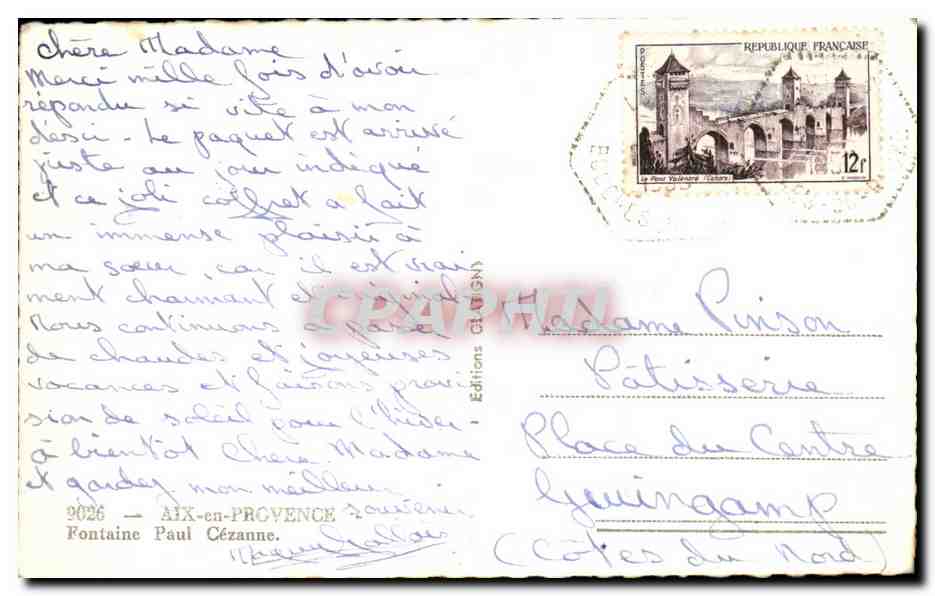 chère Madame
Merci mille fois d'avoir
répondu si vite à mon
désir. Le paquet est arrivé
juste au jour indiqué
et ce joli coffret a fait
un immense plaisir à
ma sœur, car il est vrai
ment charmant et original
Nous continuons à passer
de chaudes et joyeuses
vacances et faisons provi
sion de soleil pour l'hiver -
à bientôt Chère Madame
et gardez mon meilleur
souvenir
9026 — AIX-en-PROVENCE
Fontaine Paul Cézanne.
Editions CLATIGNY
CPAPHIL
POSTES
REPUBLIQUE FRANÇAISE
Le Pont Valentré (Cahors)
12f
Madame Pinson
Pâtisserie
Place du Centre
Guingamp
(Côtes du Nord)